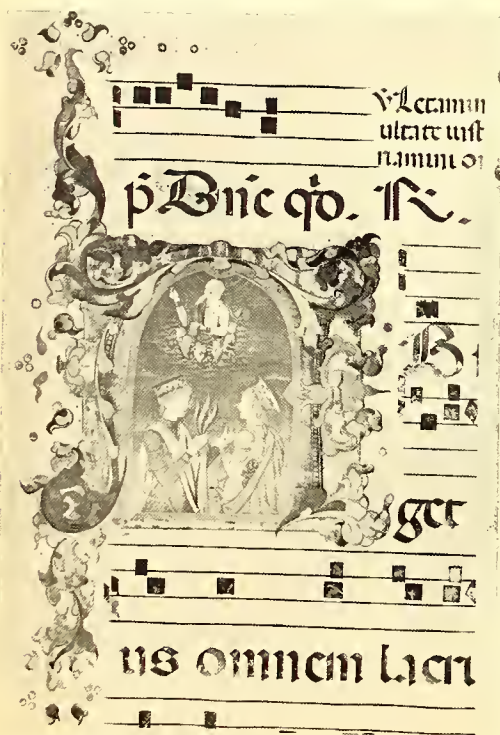 V Letamin
ultate iust
riamini o
p̄ Dñe qo. R.
B
get
us omnem lacri